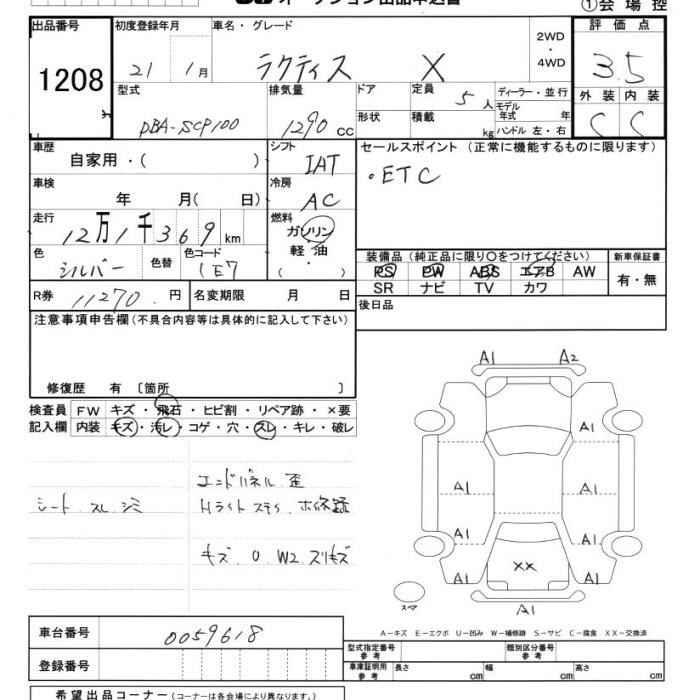 オークション出品申込書
①会場控
出品番号
1208
初度登録年月
21 1月
車名・グレード
ラクティス X
2WD
・
4WD
評価点
3.5
外装 内装
C C
型式
DBA-SCP100
排気量
1290 CC
ドア
形状
定員 5人
積載 kg
ディーラー・並行
モデル年式 年
ハンドル 左・右
車歴
自家用・( )
シフト
IAT
セールスポイント(正常に機能するものに限ります)
・ETC
車検
年 月( 日)
冷房
AC
走行
12万1千369km
燃料
ガソリン
軽油
・( )
色
シルバー
色替
色コード
1E7
装備品(純正品に限り○をつけてください)
PS PW ABS エアB AW
SR ナビ TV カワ
新車保証書
有・無
R券 11270 円
名変期限 月 日
後日品
注意事項申告欄(不具合内容等は具体的に記入して下さい)
修復歴 有 〔箇所 〕
検査員
記入欄
FW キズ・飛石・ヒビ割・リペア跡・×要
内装 キズ・汚レ・コゲ・穴・スレ・キレ・破レ
シート スレ シミ
エンドパネル 歪
Hライト ステイ 補修跡
キズ 0 W2 スリキズ
A1 A2
A1
A1 A1
A1 A1
XX
A1 A1
A1
スペア
A−キズ E−エクボ U−凹み W−補修跡 S−サビ C−腐食 XX−交換済
車台番号
0059618
登録番号
型式指定番号
参考
類別区分番号
参考
車庫証明用
参考
長さ cm 幅 cm 高さ cm
希望出品コーナー(コーナーは各会場により異なります。)